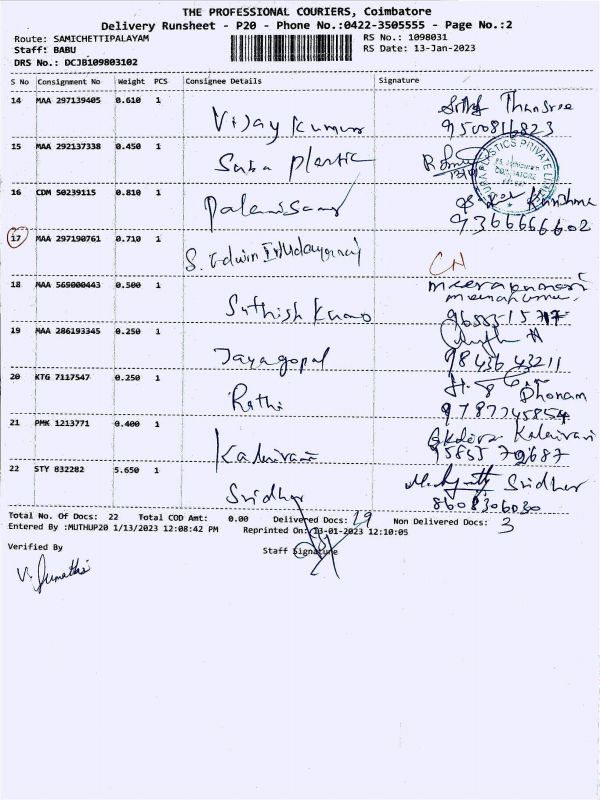 THE PROFESSIONAL COURIERS, Coimbatore
Delivery Runsheet - P20 - Phone No.:0422-3505555 - Page No.:2
Route: SAMICHETTIPALAYAM RS No.: 1098031
Staff: BABU RS Date: 13-Jan-2023
DRS No.: DCJB109803102
S No Consignment No Weight PCS Consignee Details Signature
14 MAA 297139405 0.610 1 Vijay Kumar Thansree
9500816823
15 MAA 292137338 0.450 1 Saba Plastic
16 CDM 50239115 0.810 1 Palanisamy
9366666602
17 MAA 297190761 0.710 1 S. Edwin
18 MAA 565000443 0.500 1 Sathish Kumar Meenakumari
19 MAA 286193345 0.250 1 Jayagopal
98436 43211
20 KTG 7117547 0.250 1 Rathi Dhonam
21 PMK 1213771 0.400 1 Kalaivani Kalaivani
22 STY 832282 5.650 1 Sridhar Sridhar
8608306030
Total No. Of Docs: 22 Total COD Amt: 0.00 Delivered Docs: 19 Non Delivered Docs: 3
Entered By :MUTHUP20 1/13/2023 12:08:42 PM Reprinted On: 13-01-2023 12:10:05
Verified By Staff Signature
V. Sumathi